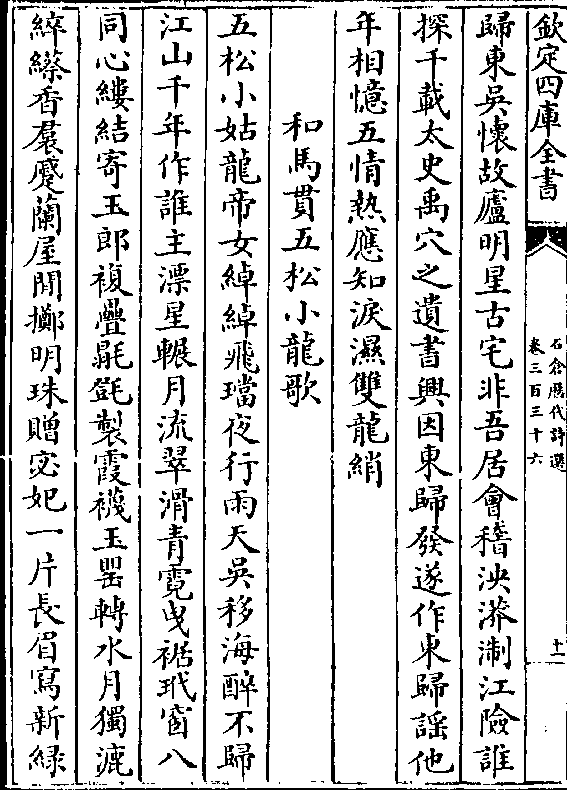 欽定四庫全書
石倉歷代詩選
卷三百三十六
十一
歸東吳懷故廬明星古宅非吾居會稽泱漭淛江險誰
探千載太史禹穴之遺書興因東歸發遂作東歸謡他
年相憶五情熱應知淚濕雙龍綃
和馬貫五松小龍歌
五松小姑龍帝女綽綽飛璫夜行雨天吳移海醉不歸
江山千年作誰主漂星輾月流翠滑青霓曳裾玳窗八
同心縷結寄玉郎複疊毾㲪製霞襪玉罌轉水月獨漉
綷縩香羣蹙蘭屋閒擲明珠贈宓妃一片長眉寫新緑